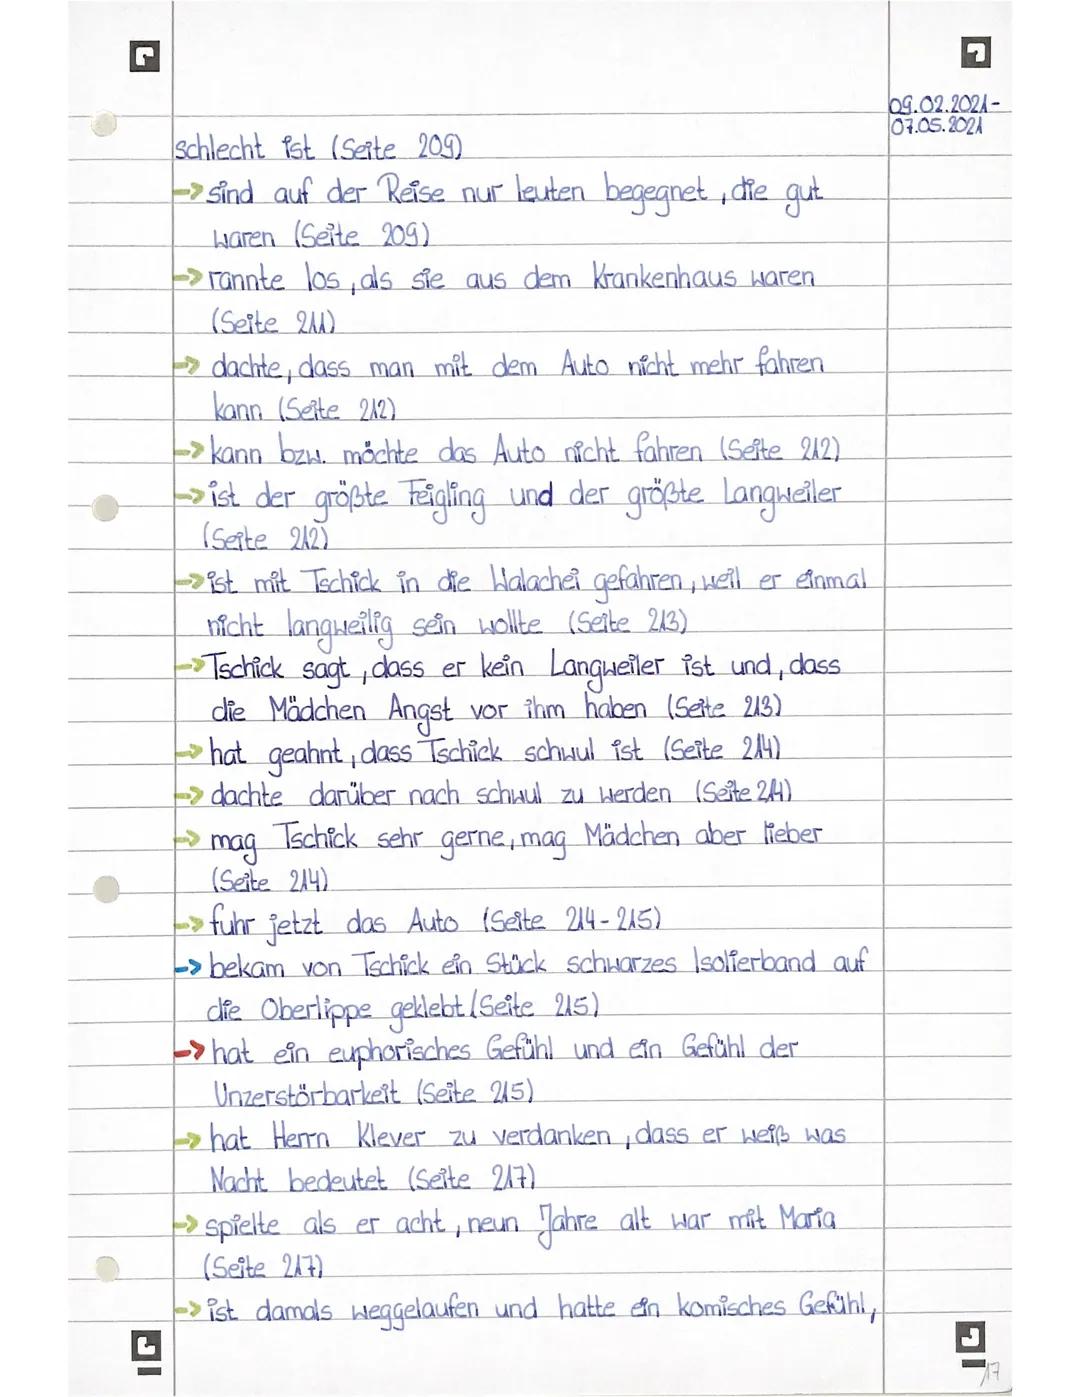 09.02.2021-
07.05.2021
schlecht ist (Seite 209)
-> sind auf der Reise nur leuten begegnet, die gut
waren (Seite 209)
-> rannte los, als sie aus dem Krankenhaus waren
(Seite 211)
-> dachte, dass man mit dem Auto nicht mehr fahren
kann (Seite 212)
-> kann bzw. möchte das Auto nicht fahren (Seite 212)
-> ist der größte Feigling und der größte Langweiler
(Seite 212)
-> ist mit Tschick in die Walachei gefahren, weil er einmal
nicht langweilig sein wollte (Seite 213)
-> Tschick sagt, dass er kein Langweiler ist und, dass
die Mädchen Angst vor ihm haben (Seite 213)
-> hat geahnt, dass Tschick schwul ist (Seite 214)
-> dachte darüber nach schwul zu werden (Seite 214)
-> mag Tschick sehr gerne, mag Mädchen aber lieber
(Seite 214)
-> fuhr jetzt das Auto (Seite 214-215)
-> bekam von Tschick ein Stück schwarzes Isolierband auf
die Oberlippe geklebt (Seite 215)
-> hat ein euphorisches Gefühl und ein Gefühl der
Unzerstörbarkeit (Seite 215)
-> hat Herrn Klever zu verdanken, dass er weiß was
Nacht bedeutet (Seite 217)
-> spielte als er acht, neun Jahre alt war mit Maria
(Seite 217)
-> ist damals weggelaufen und hatte ein komisches Gefühl,
17